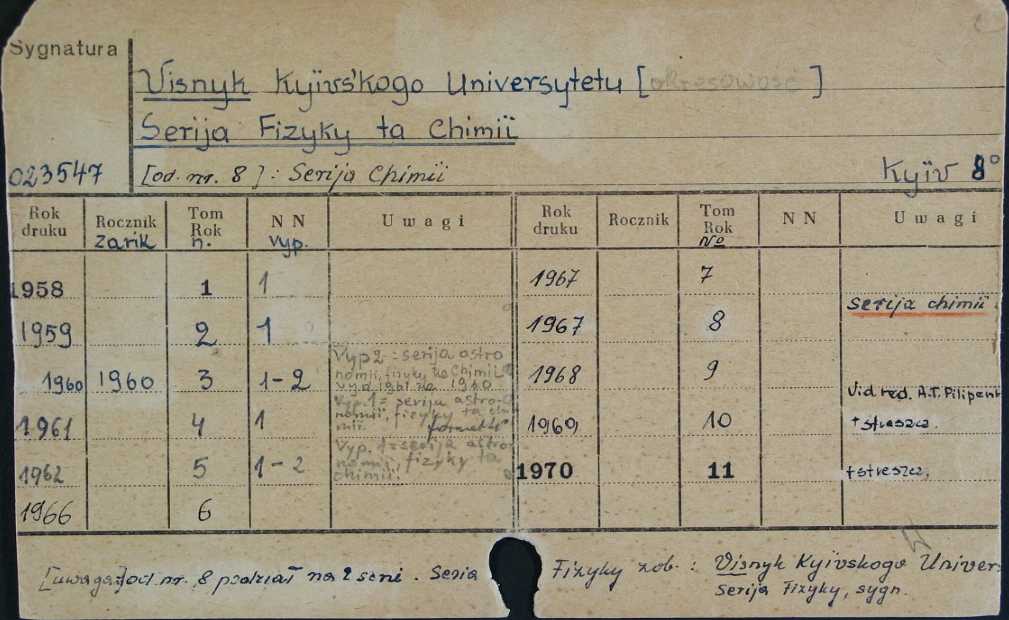 Sygnatura
Visnyk Kyïvs'kogo Universytetu [okresowość]
Serija Fizyky ta Chimiï
023547 [od. nr. 8]: Serija Chimiï Kyïv 8°
Rok druku Rocznik Zarik Tom Rok n. NN vyp. Uwagi Rok druku Rocznik Tom Rok No NN Uwagi
1958 1 1 1967 7
serija chimiï
1959 2 1 1967 8
Vyp 2: serija astro
nomii, fizyky ta Chimii
1960 1960 3 1-2 1968 9
vyd. 1961 na 1960
Vid red. A.T. Pilipen
Vyp. 1= serija astro-
nomii, fizyky ta chi
mii.
1961 4 1 1969 10 + streszcz.
Vyp. 1= serija astro
nomii, fizyky ta
chimii.
1962 5 1-2 1970 11 + streszcz.
1966 6
[uwaga:] od nr. 8 podział na 2 serie. Seria Fizyky zob.: Visnyk Kyïvskogo Univers
Serija Fizyky, sygn.